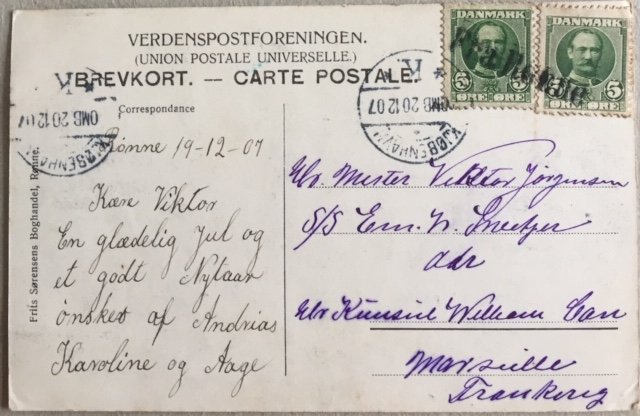 VERDENSPOSTFORENINGEN.
(UNION POSTALE UNIVERSELLE.)
BREVKORT. — CARTE POSTALE.
Correspondance
Rønne 19-12-07
Kære Viktor
En glædelig Jul og
et godt Nytaar
ønskes af Andrias
Karoline og Aage
Frits Sørensens Boghandel, Rønne.
DANMARK
5 5
ØRE ØRE
DANMARK
5
ØRE ØRE
Fra Rønne
KJØBENHAVN
OMB 20 12 07
K
KJØBENHAVN
OMB 20 12 07
K
Hr Mester Viktor Jørgensen
S/S Em.
adr
Hr Kunsul William
Marseille
Frankerig